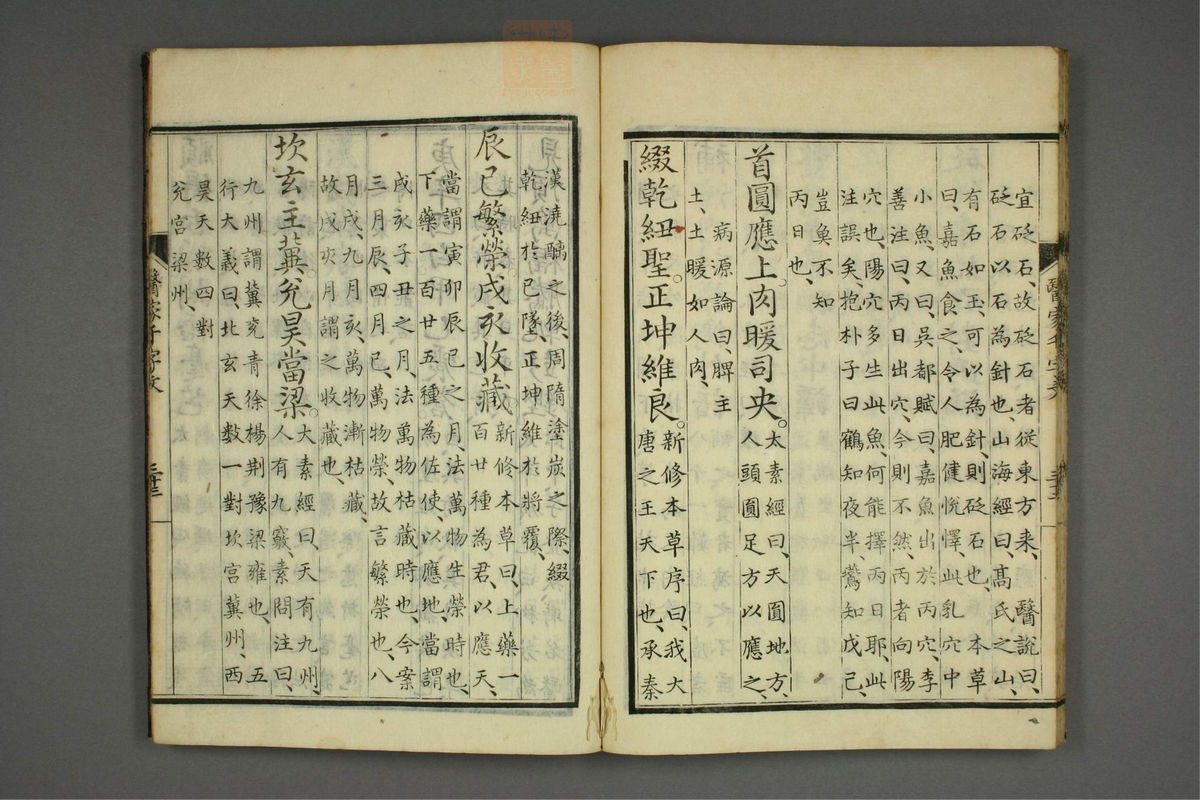 宜砭石、故砭石者従東方来、醫說曰、
砭石以石為針也、山海經曰、髙氏之山、
有石如玉、可以為針、則砭石也、本草
曰、嘉魚食之、令人肥健悅懌、此乳穴中
小魚、又曰、吳都賦曰、嘉魚出於丙穴、李
善注曰、丙日出穴、今則不然、丙者向陽
穴也、陽穴多生此魚、何能擇丙日耶、此
注誤矣、抱朴子曰鶴知夜半、鷰知戊己、
豈奐不知
丙日也、
首圓應上肉暖司央。太素經曰、天圓地方、
人頭圓足方以應之、
病源論曰、脾主
土、土暖如人肉、
綴乾紐聖。正坤維良。新修本草序曰、我大
唐之王天下也、承秦
漢澆醨之後、周隋塗炭之際、綴
乾紐於已墜、正坤維於將覆、
辰已繁榮戌亥收藏新修本草曰、上藥一
百廿種為君、以應天、
當謂寅卯辰巳之月、法萬物生榮時也、
下藥一百廿五種為佐使、以應地、當謂
戌亥子丑之月、法萬物枯藏時也、今案
三月辰、四月巳、萬物榮、故言繁榮也、八
月戌、九月亥、萬物漸枯藏、
故戌亥月謂之收藏也、
坎玄主冀。兊昊當梁。太素經曰、天有九州、
人有九竅、素問注曰、
九州謂冀兖青徐楊荆豫梁雍也、五
行大義曰北玄天数一對坎宫冀州、西
昊天数四對
兊宫梁州、
醫家千字文
三十三